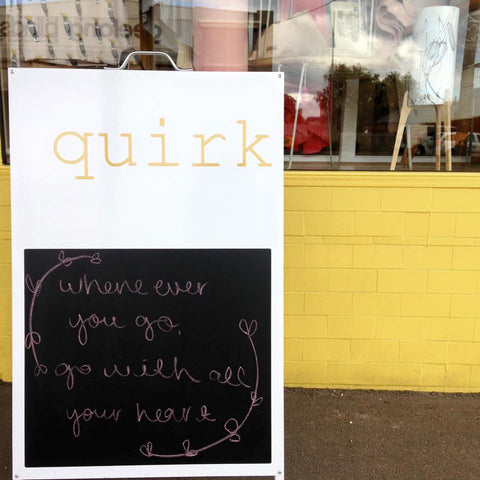 quirk
where ever
you go,
go with all
your heart